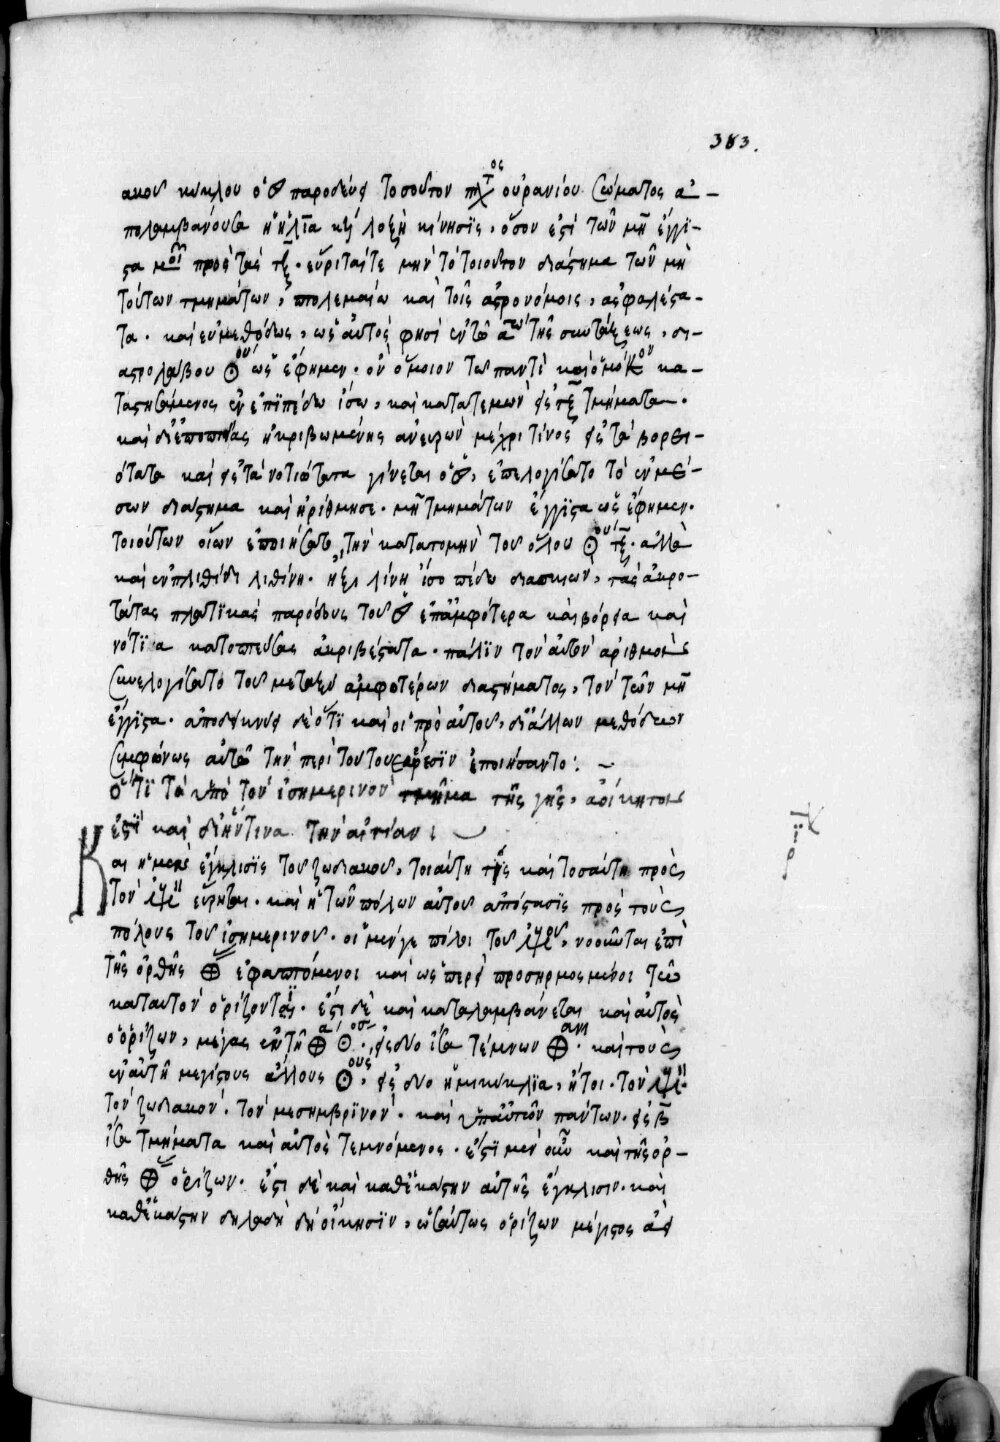 383.
ακοῦ κύκλου ὁ ☌ παροδεύει τοσοῦτον τοῦ οὐρανίου σώματος ἀ-
πολαμβάνουσα ἡ ἡλιακὴ λοξὴ κίνησις, ὅσον ἐστὶ τῶν μη ἔγγι-
στα μοι πρὸς τὰς τξ. εὕρηταί τε μὴν τὸ τοιοῦτον διάστημα τῶν μη
τούτων τμημάτων, πτολεμαίω καὶ τοῖς ἀστρονόμοις, ἀσφαλέστα-
τα. καὶ εὐμεθόδως, ὡς αὐτός φησι ἐν τῶ α τῆς συντάξεως, δι-
αστρολάβου ☉ ὡς ἔφημεν. ὃν ὅμοιον τῶ παντὶ καὶ κα-
ταστησάμενος ἐν ἐπιπέδω ἴσω, καὶ κατατεμὼν εἰς τξ τμήματα.
καὶ διεποπτείας ἠκριβωμένης ἀνευρὼν μέχρι τίνος εἰς τὰ βορει-
ότατα καὶ εἰς τὰ νοτιώτατα γίνεται ὁ ☌, ἐπελογίσατο τὸ ἐν μέ-
σων διάστημα καὶ ἠρίθμησε. μη τμημάτων ἔγγιστα ὡς ἔφημεν.
τοιούτων οἵων ἐποιήσατο τὴν κατατομὴν τοῦ ὅλου ☉ου τξ. ἀλλὰ
καὶ ἐν πλινθίδι λιθίνη. ἢ ξυλίνη ἰσοπέδω διασκιῶν, τὰς ἀκρο-
τάτας πλατικὰς παρόδους τοῦ ☌ ἐπ' ἀμφότερα καὶ βόρεια καὶ
νότια κατοπτεύσας ἀκριβέστατα. πάλιν τὸν αὐτὸν ἀριθμὸν
συνελογίσατο τοῦ μεταξὺ ἀμφοτέρων διαστήματος, τὸν τῶν μη
ἔγγιστα. ἀποδείκνυσι δὲ ὅτι καὶ οἱ πρὸ αὐτοῦ, δι' ἄλλων μεθόδων
συμφώνως αὐτῶ τὴν περὶ τούτου εὕρεσιν ἐποιήσαντο:
ὅτι τὰ ὑπὸ τὸν ἰσημερινὸν τμῆμα τῆς γῆς, ἀοίκητον
ἐστὶ καὶ δι' ἥντινα τὴν αἰτίαν:
Και ἡ μὲν ἔγκλισις τοῦ ζωδιακοῦ, τοιαύτη τὶς καὶ τοσαύτη πρὸς
τὸν εὕρηται. καὶ ἡ τῶν πόλων αὐτοῦ ἀπόστασις πρὸς τοὺς
πόλους τοῦ ἰσημερινοῦ. οἱ μέν γε πόλοι τοῦ, νοοῦνται ἐπὶ
τῆς ὀρθῆς ⊕ ἐφαπτόμενοι καὶ ὡσπερεὶ προσηρμοσμένοι τῶ
κατ' αυτὸν ὁρίζοντι. ἔστι δὲ καὶ καταλαμβάνεται καὶ αὐτὸς
ὁ ὁρίζων, μέγας ἐν τῆ ⊕α ☉ος, εἰς δύο ἴσα τέμνων ⊕αν. καὶ τοὺς
ἐν αὐτῆ μεγίστους ἄλλους ☉ους, εἰς δύο ἡμικύκλια, ἤτοι. τὸν
τὸν ζωδιακόν. τὸν μεσημβρινόν. καὶ ὑπ' αὐτῶν πάντων. εἰς β
ἴσα τμήματα καὶ αὐτὸς τεμνόμενος. ἔστι μὲν οὖν καὶ τῆς ὀρ-
θῆς ⊕ ὁρίζων. ἔστι δὲ καὶ καθ' ἑκάστην αὐτῆς ἔγκλισιν. καὶ
καθ' ἑκάστην δηλαδὴ δὴ οἴκησιν, ὡσαύτως ὁρίζων μέγιστος ἀεὶ